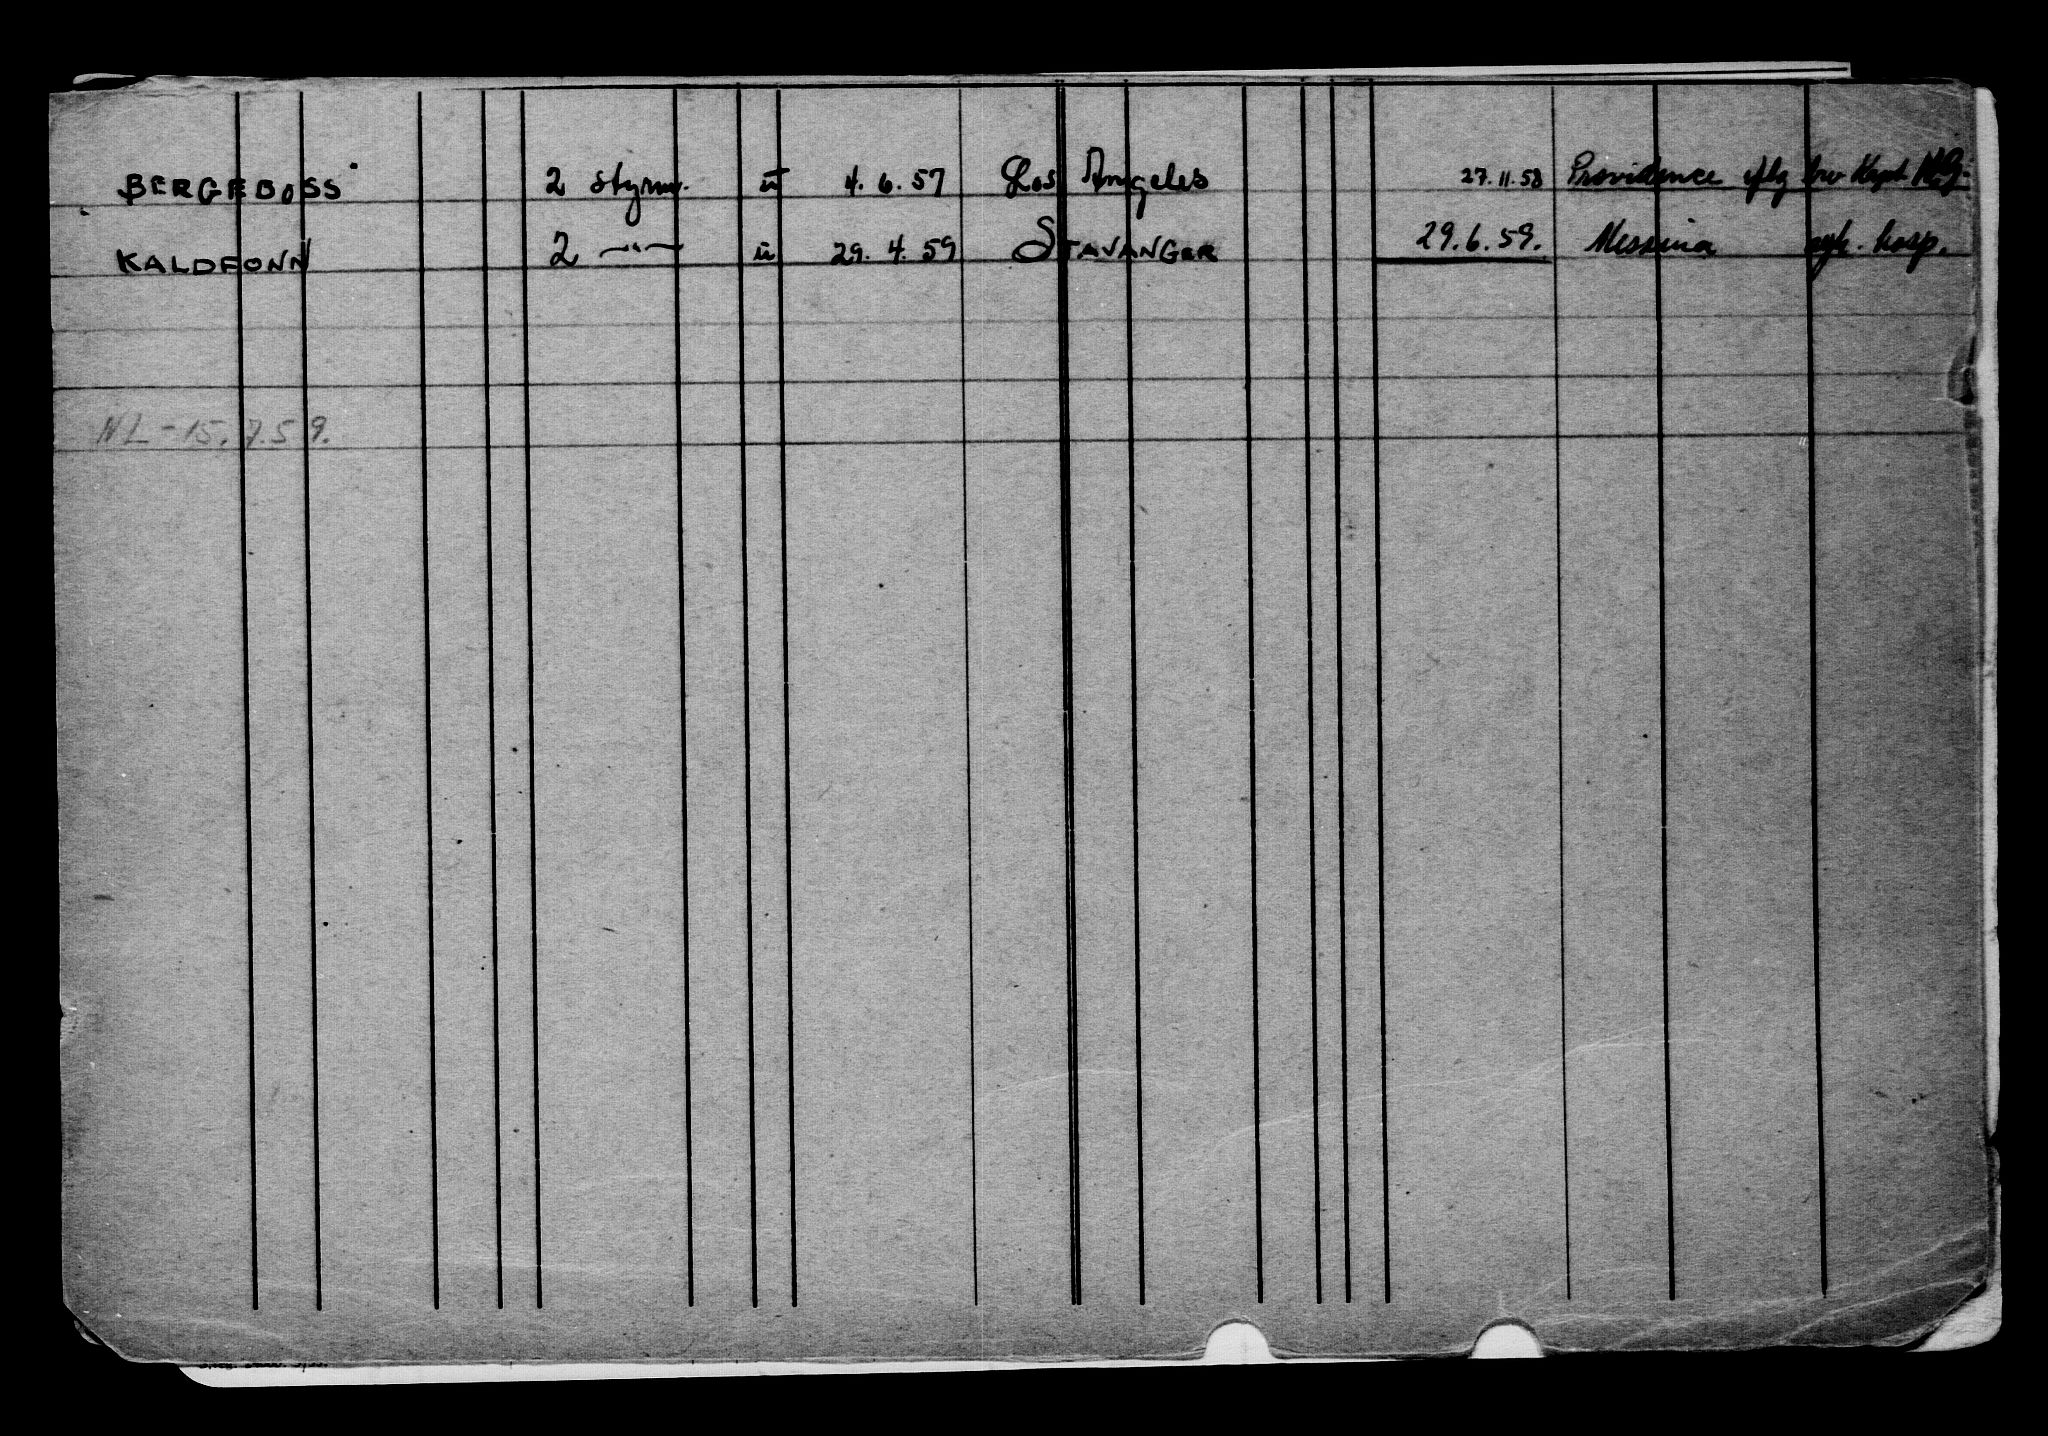 BERGEBOSS 2 styrm. u 4. 6. 57 Los Angeles 27. 11. 58 Providence iflg brev Kapt
KALDFONN 2 —"— u 29. 4. 59 STAVANGER 29. 6. 59. Messina syk. hosp.
NL - 15. 7. 59.